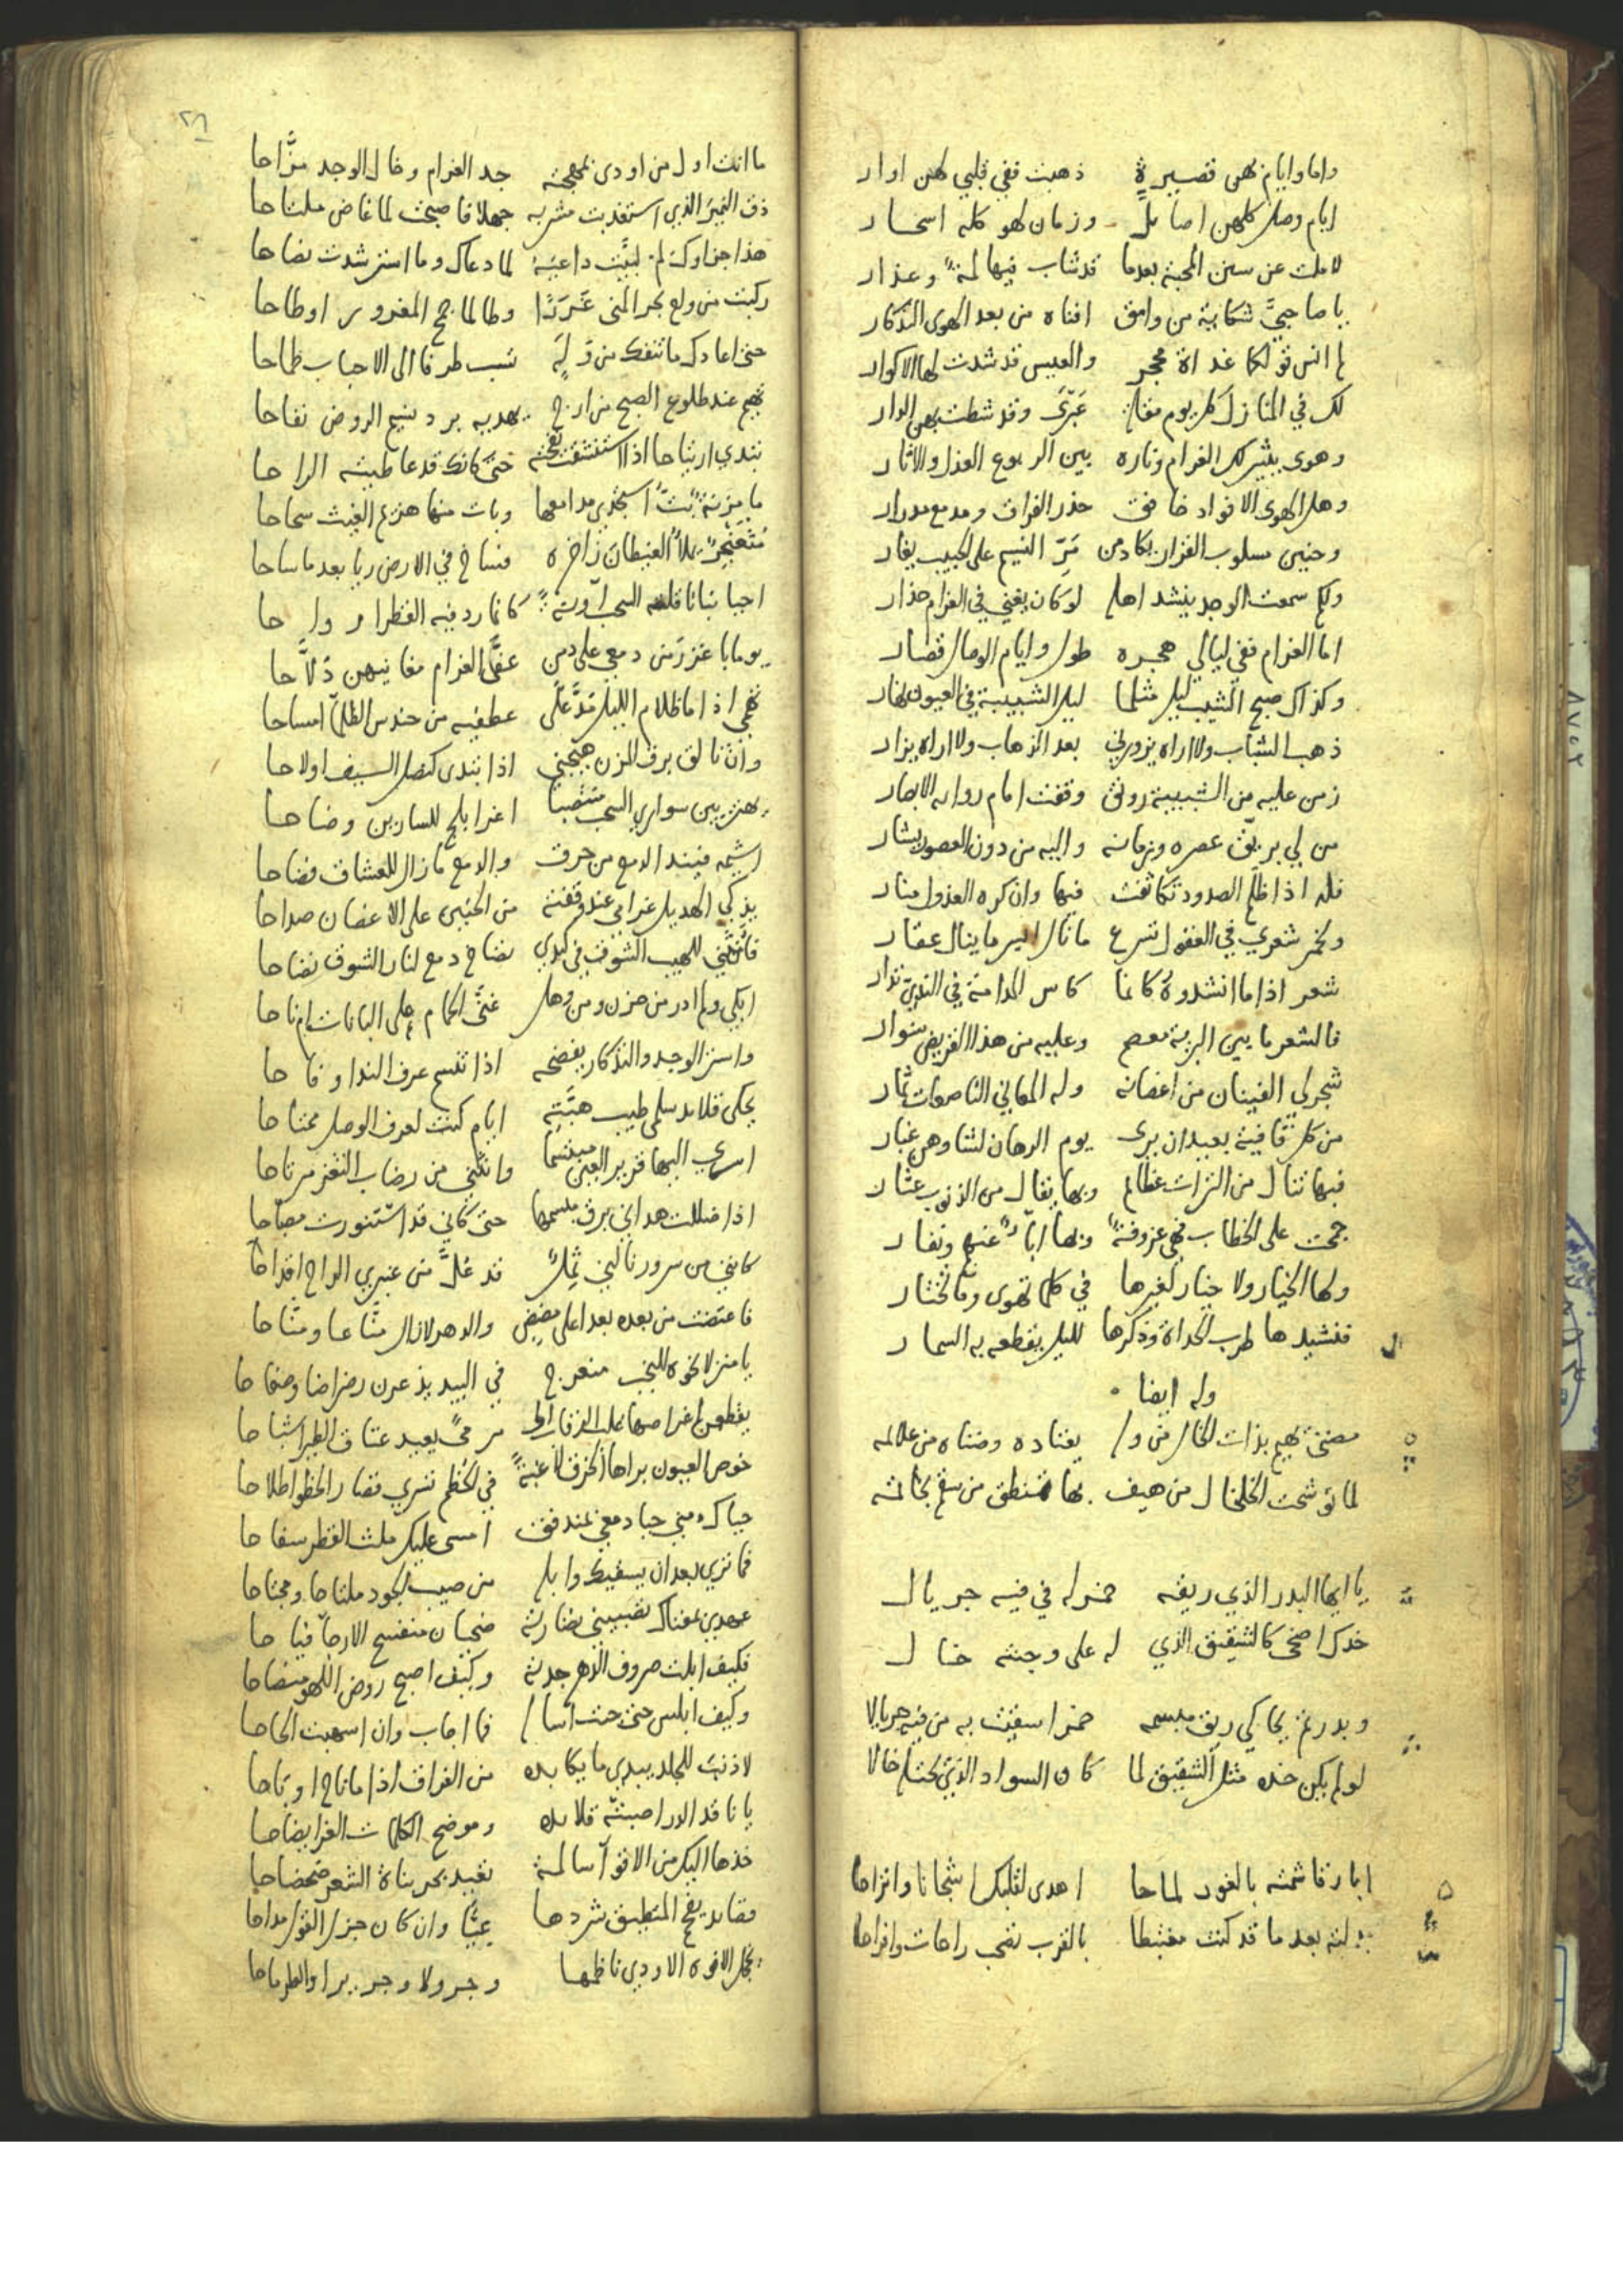 واما وايام بهن قصيرة ذهبت ففي قلبي لهن اوار
ايام وصل كلهن اصائل وزمان لهو كله اسحار
لاملت عن سنن المحبة بعدما قد شاب فيها لمة وعذار
يا صاحبيَّ شكاية من وامق افناه من بعد الهوى التذكار
لم انس قولكما غداة محجر والعيس قد شدت لها الاكوار
لك في المنازل كل يوم وقد شطت بهن الدار
وهوى يثير لك الغرام وناره بين الربوع العذل والاثار
وهل الهوى الا فواد خافق حذر الفراق ومدمع مدرار
وحنين مسلوب القرار يكاد من مَرِّ النسيم على الحبيب يغار
ولكم سمعت الوجد ينشد اهله لو كان يغني في الغرام حذار
اما الغرام ففي ليالي هجره طول وايام الوصال قصار
وكذاك صبح الشيب ليل مثلما ليل الشبيبة في العيون نهار
ذهب الشباب ولا اراه يزورني بعد الذهاب ولا اراه يزار
زمن عليه من الشبيبة رونق وقفت امام روائه الابصار
من لي بريّق عصره وزمانه واليه من دون العصور يشار
فله اذا ظلم الصدود تكاثفت فيها وان كره العذول منار
ولخمر شعري في العقول تسرع ما نال ايسر ما ينال عقار
شعر اذا ما انشدوه كانما كاس المدامة في الندي تدار
فالشعر ما بين البرية معصم وعليه من هذا القريض سوار
شجر لي الفينان من اغصانه وله المعاني الناصعات ثمار
من كل قافية بعيد ان يرى يوم الرهان لشاوهن غبار
فبها تنال من التراث عظائم وبها يقال من الذنوب عثار
جمحت على الخطاب فهي عزوفة وبها اباء عنهم ونفار
ولها الخيار ولا خيار لغيرها في كل ما تهوى وما تختار
فنشيدها طرب الحداة وذكرها لليل يقطعه به السمار
وله ايضا
مضنى يهيم بذات الخال من ولم يعتاده وضناه من علائمه
لما توشحت الخلخال من هيف بها تمنطق من سقم بخاتمه
يا ايها البدر الذي ريقه خمر له في فيه جريال
خدك اضحى كالشقيق الذي له على وجنته خال
وبدر تم يحاكي ريق مبسمه خمرا سقيت به من فيه جريالا
لو لم يكن خده مثل الشقيق لما كان السواد الذي تحتله خالا
ايا رقا شمته بالغور لماحا اهدى لقلبك اشجانا واتراحا
بدلته بعد ما قد كنت مغتبطا بالقرب تصحب راحات وافراحا
٢٦
ما انت اول من اودى بمهجته جد الغرام وخال الوجد مزَّاحا
ذق النمير الذي استعذبت مشربه جهلا فاصبحت لما غاض ملتاحا
هذا جزاوك لم لبَّيت داعيَهُ لما دعاك وما استرشدت نصاحا
ركبت من ولع بحر المنى غَرَرًا وطالما جمح المغرور او طاحا
حتى اعادك ما تنفك من وَلَهٍ تسيب طرفا الى الاحباب طماحا
تهيم عند طلوع الصبح من ارج يهديه برد نسيم الروض نفاحا
تبدي ارتياحا اذا استنشقت نفحته حتى كانك قد عاطيته الراحا
ما مزنة بتُّ استجدي مدامعها وبات منها هزيم الغيث سحاحا
مُثْعَنْجِرٌ يملأ الغيطانَ زاخره فساخ في الارض ريا بعد ما ساحا
احيا نباتا السحب آونة كانما رد فيه القطر ارواحا
يوما باغزر من دمعي على دمن عفَّى الغرام مغانيهن
تهمي اذا ما ظلام الليل مَدَّ على عطفيه من حندس الظلمآ امساحا
وان تالق برق المزن هيجني اذا تبدى كنصل السيف او لاحا
يهتز بين سواري السحب منتصبا اغر ابلج للسارين وضاحا
اشيمه فيبد الدمع من حرق والدمع ما زال للعشاق فضاحا
يذكي الهديل غرامي عند وقفته من الحنين على الاغصان صداحا
فأنثني للهيب الشوق في كبدي نضاخ دمع لنار الشوق نضاحا
ابكي ولم ادر من حزن ومن وهل غنّى الحمام على البانات ام ناحا
واستر الوجد والتذكار يفضحه اذا تنسم عرف الندا وفاحا
يحكي قلائد سلمى طيب هبَّتِهِ ايام كنت لعرف الوصل ممتاحا
اسري اليها قرير العين مبتسما وانثني من رضاب الثغر مرتاحا
اذا ضللت هداني برق مبسمها حتى كاني قد استنورت مصباحا
كانني من سرور نالني ثَمِلٌ قد عُلَّ من عنبري الراح اقداحا
فاعتضت من بعده بعدا على مضض والدهر لازال منَّاعا ومنَّاحا
يا منزلا نحوه للنجب منعرج في البيد يذعرن رضراضا وصفاحا
مرمىً يعيد عتاق الطير اشباحا
خوص العيون براها الخرق لاغبةً في الخُطم تسري قصار الخطو اطلاحا
حياك مني حيا دمعي بمندفق امسى عليك ملث القطر سفاحا
فما تري بعد ان يسقيك وابله من صيب الجود ملتاحا ومجتاحا
عهدي بمغناك تصبيني نضارته ضحيان منفسح الارجآ فياحا
فكيف ابلت صروف الدهر جدته وكيف اصبح روض اللهو منصاحا
وكيف ابلس حتى حثت اساله فما اجاب وان اسهبت الحاحا
لا ذنب للجلد يبدي ما يكابده من الفراق اذا ما ناح او باحا
يا ناقد الدر اصبته قلائده وموضح الكلمات الغر ايضاحا
خذها اليك من الاقوآ سالمة تعيد بحر بناة الشعر ضحضاحا
قصائد يفحم المنطيق شردها عِيًّا وان كان جزل القول مداحا
يخجل الافوه الاودي ناظمها وجرولا وجريرا والطرماحا